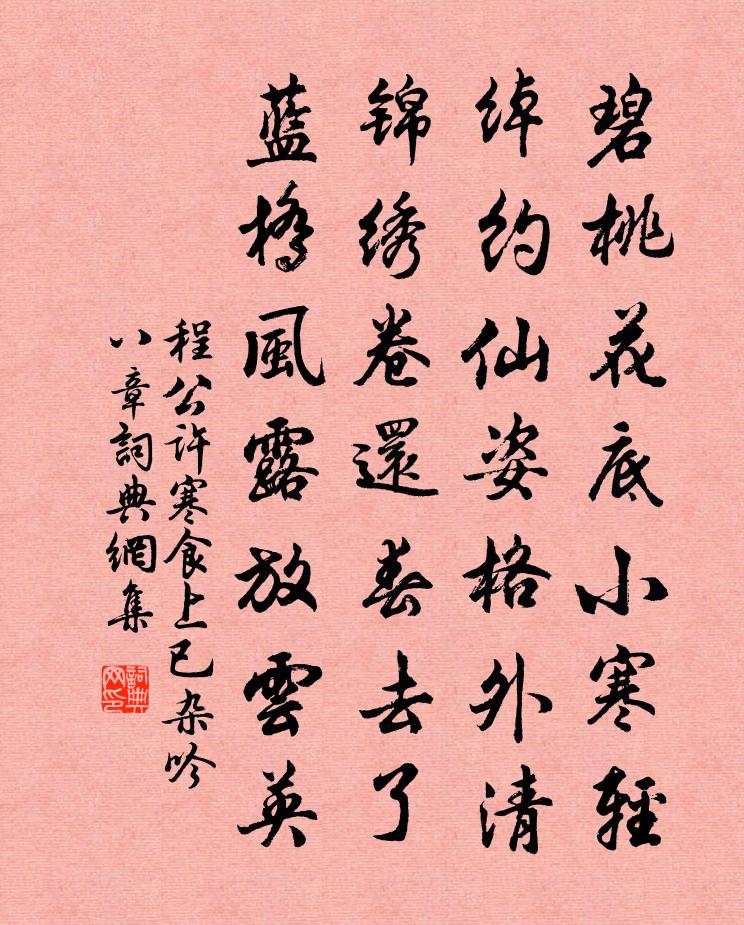 碧桃花底小寒輕
绰约仙姿格外清
锦绣卷還春去了
藍橋風露放雲英
程公许寒食上巳杂吟
八章詞典網集
詞典网印